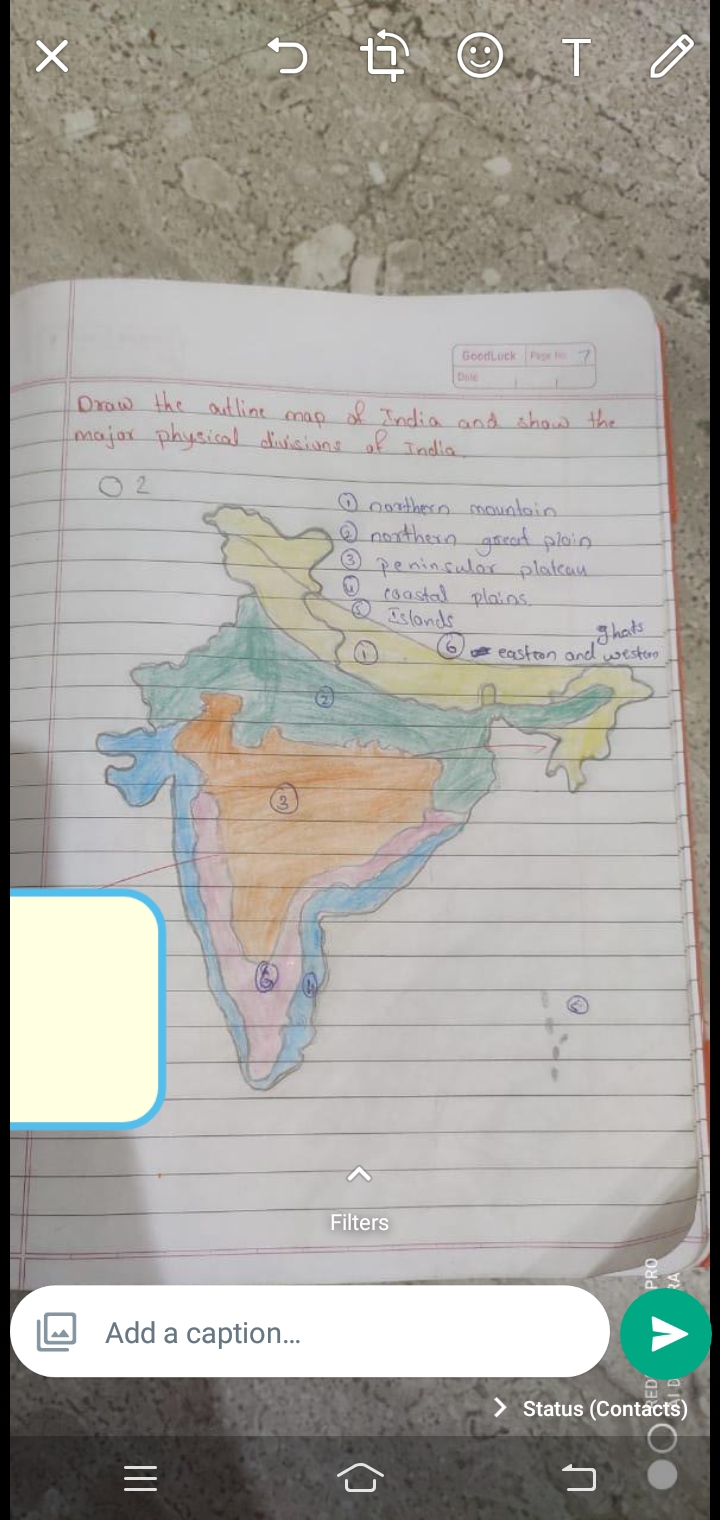 T
GoodLuck
Page No. 7
Date
Draw the outline map of India and show the
major physical divisions of India.
Q 2
① northern mountain
② northern great plain
③ peninsular plateau
④ coastal plains.
⑤ Islands
ghats
⑥ eastern and western
①
②
③
⑥
④
⑤
Filters
Add a caption...
Status (Contacts)
PRO